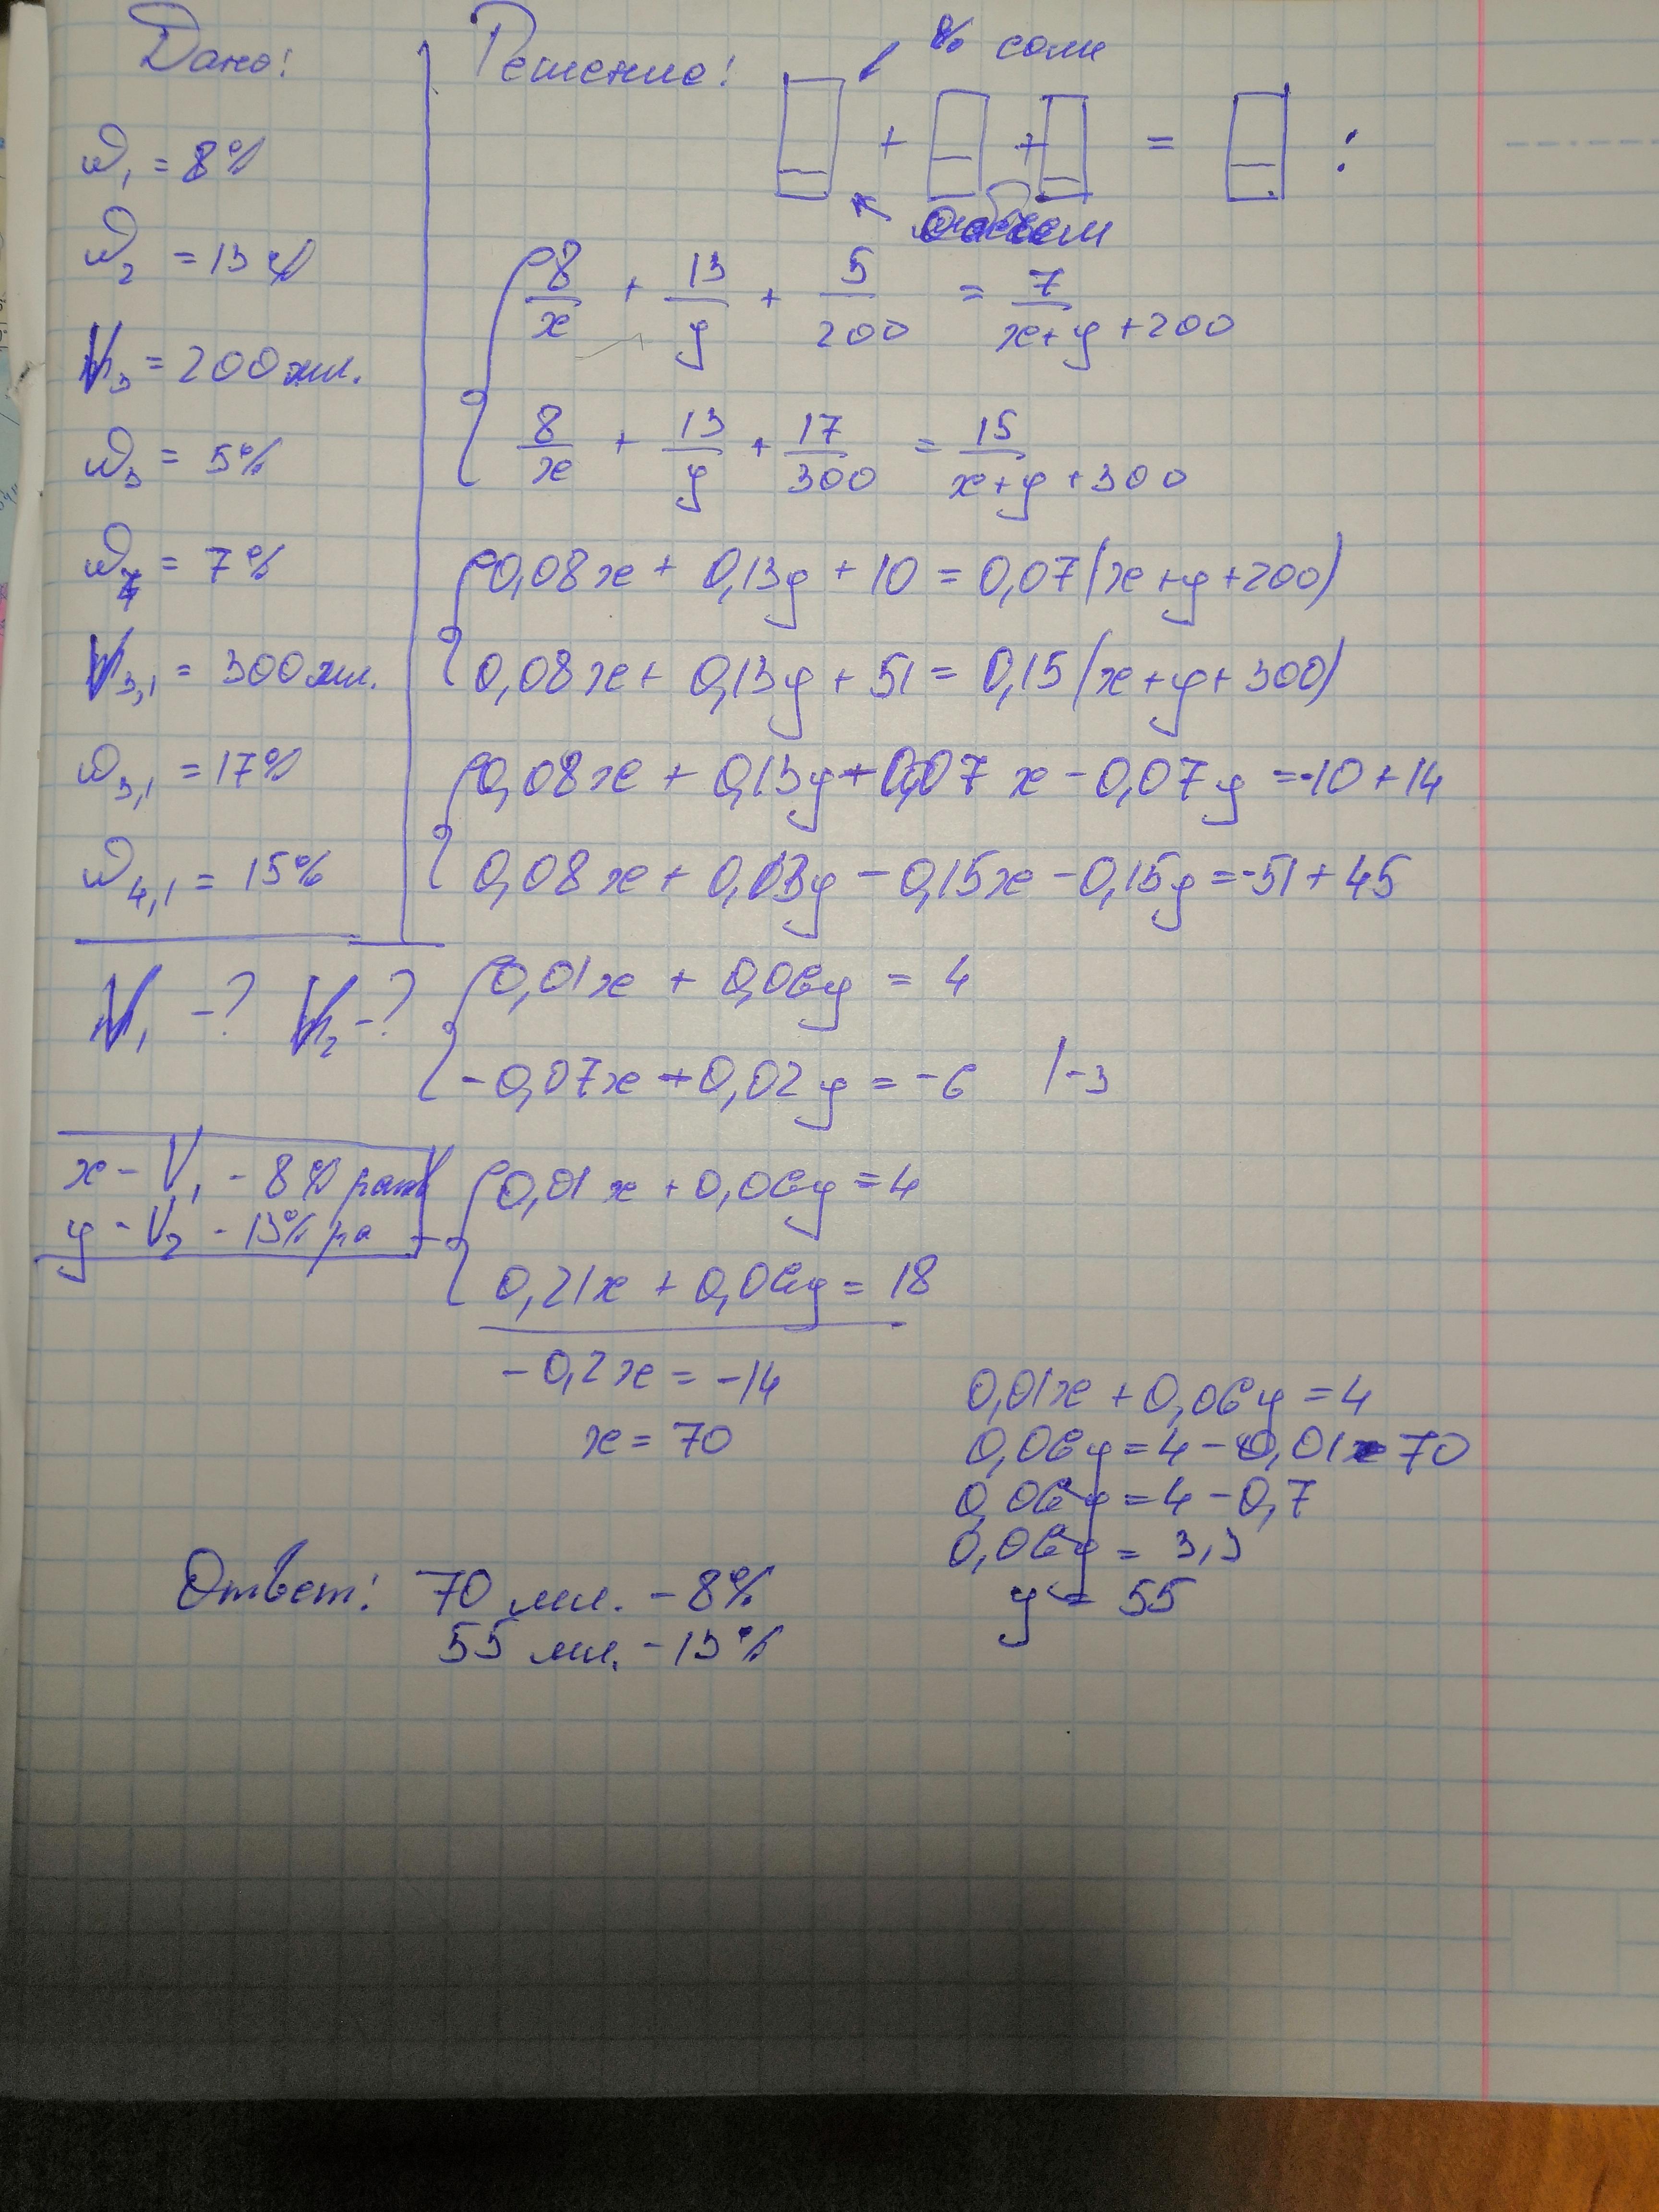 Дано:
ω₁ = 8%
ω₂ = 13%
V₃ = 200 мл.
ω₃ = 5%
ω₄ = 7%
V₃,₁ = 300 мл.
ω₃,₁ = 17%
ω₄,₁ = 15%
V₁ - ? V₂ - ?
x - V₁ - 8%
y - V₂ - 13% ра
Решение:
% соли
+ + = :
объем
8/x + 13/y + 5/200 = 7/x+y+200
8/x + 13/y + 17/300 = 15/x+y+300
0,08x + 0,13y + 10 = 0,07(x+y+200)
0,08x + 0,13y + 51 = 0,15(x+y+300)
0,08x + 0,13y - 0,07x - 0,07y = -10 + 14
0,08x + 0,13y - 0,15x - 0,15y = -51 + 45
0,01x + 0,06y = 4
-0,07x - 0,02y = -6 /-3
0,01x + 0,06y = 4
0,21x + 0,06y = 18
-0,2x = -14
x = 70
0,01x + 0,06y = 4
0,06y = 4 - 0,01 · 70
0,06y = 4 - 0,7
0,06y = 3,3
y = 55
Ответ: 70 мл. - 8%
55 мл. - 13%